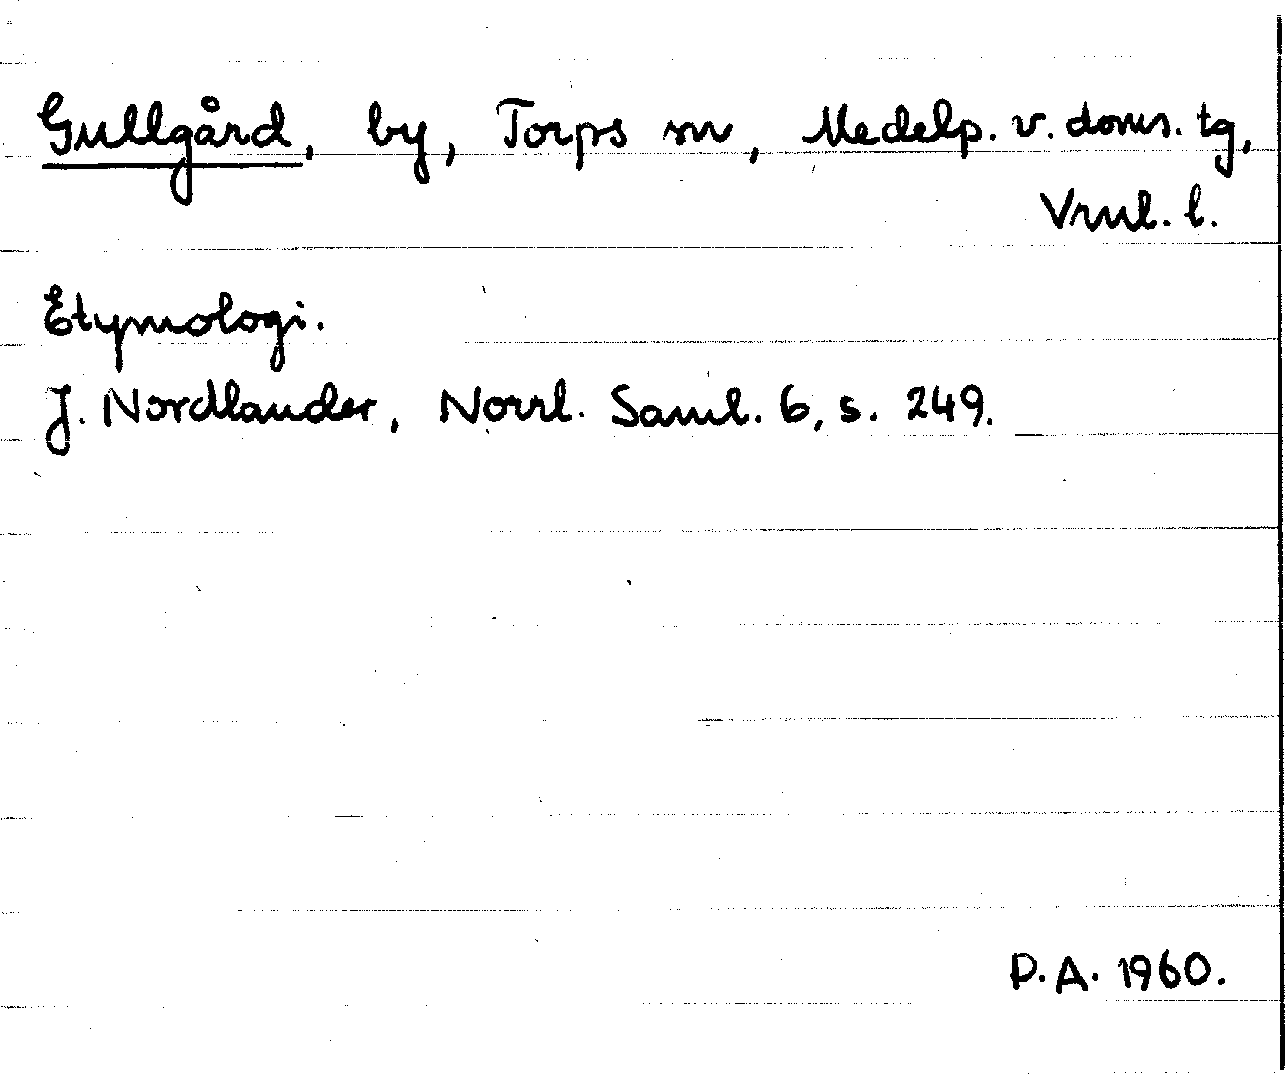 Gullgård, by, Torps sn, Medelp. v. doms. tg,
Vrnl. l.
Etymologi.
J. Nordlander, Norrl. Saml. 6, s. 249.
P.A. 1960.